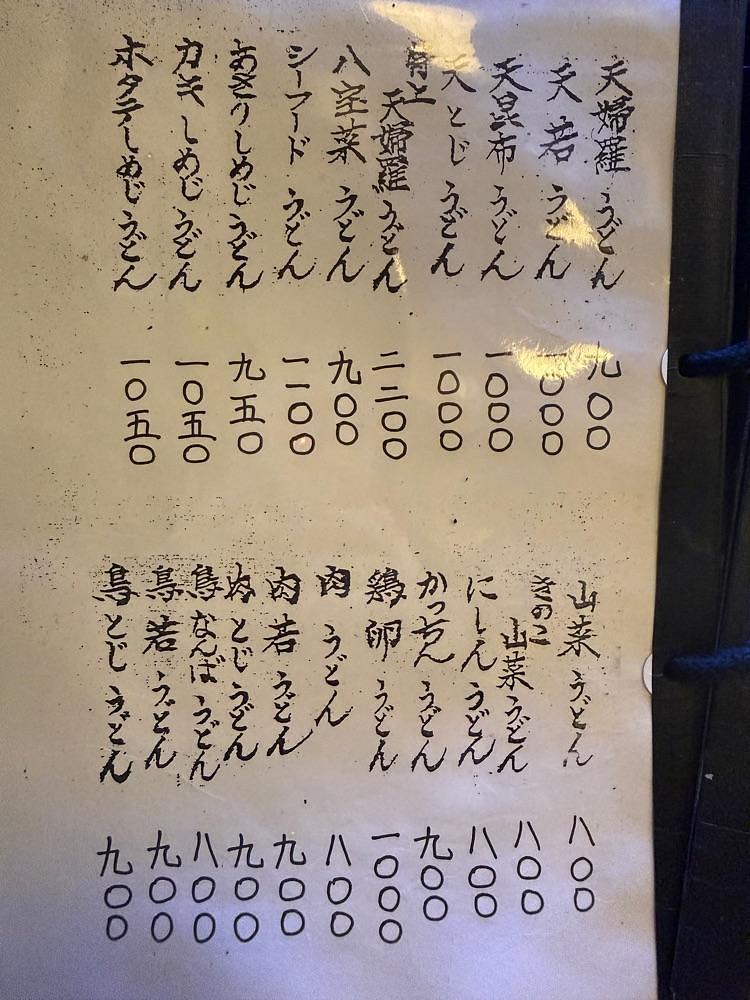 天婦羅うどん 九〇〇
天若うどん 一〇〇〇
天昆布うどん 一〇〇〇
天とじうどん 一〇〇〇
特上天婦羅うどん 二二〇〇
八宝菜うどん 九〇〇
シーフードうどん 一一〇〇
あさりしめじうどん 九五〇
カキしめじうどん 一〇五〇
ホタテしめじうどん 一〇五〇
山菜うどん 八〇〇
きのこ山菜うどん 八〇〇
にしんうどん 八〇〇
かっちんうどん 九〇〇
鶏卵うどん 一〇〇〇
肉うどん 八〇〇
肉若うどん 九〇〇
肉とじうどん 九〇〇
鳥なんばうどん 八〇〇
鳥若うどん 九〇〇
鳥とじうどん 九〇〇